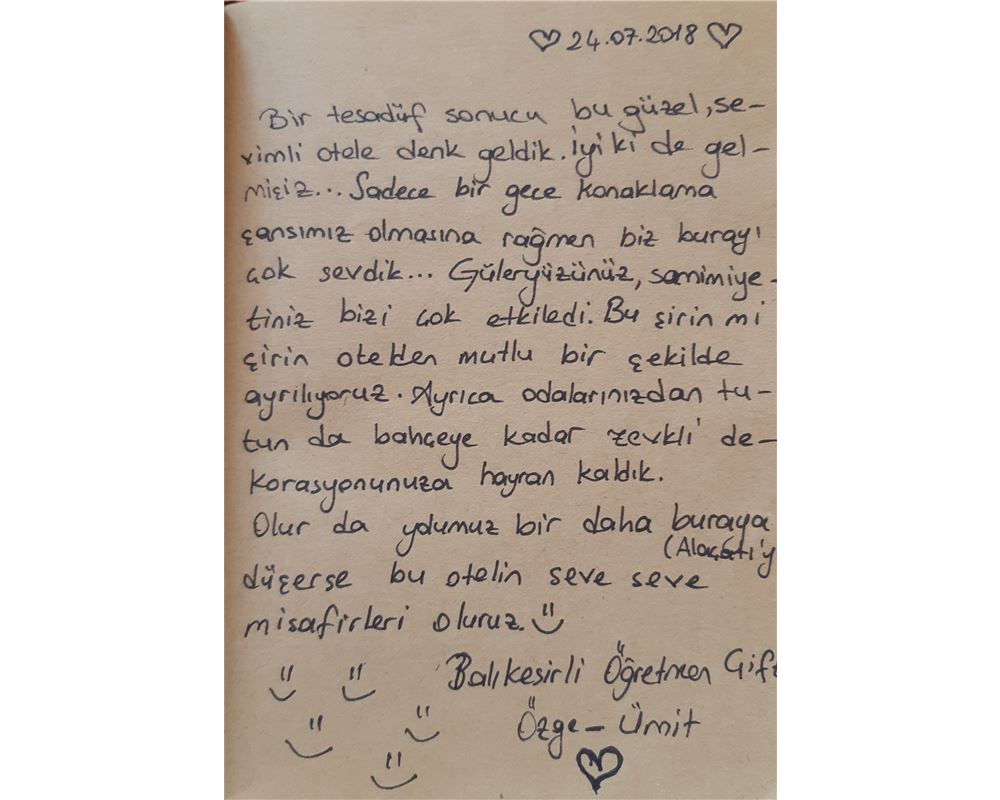 ♡ 24.07.2018 ♡
Bir tesadüf sonucu bu güzel, se-
vimli otele denk geldik. İyi ki de gel-
mişiz... Sadece bir gece konaklama
şansımız olmasına rağmen biz burayı
çok sevdik... Güleryüzünüz, samimiye-
tiniz bizi çok etkiledi. Bu şirin mi
şirin otelden mutlu bir şekilde
ayrılıyoruz. Ayrıca odalarınızdan tu-
tun da bahçeye kadar zevkli de-
korasyonunuza hayran kaldık.
Olur da yolumuz bir daha buraya
(Alaçatı'y
düşerse bu otelin seve seve
misafirleri oluruz.
Balıkesirli Öğretmen Çift
Özge - Ümit